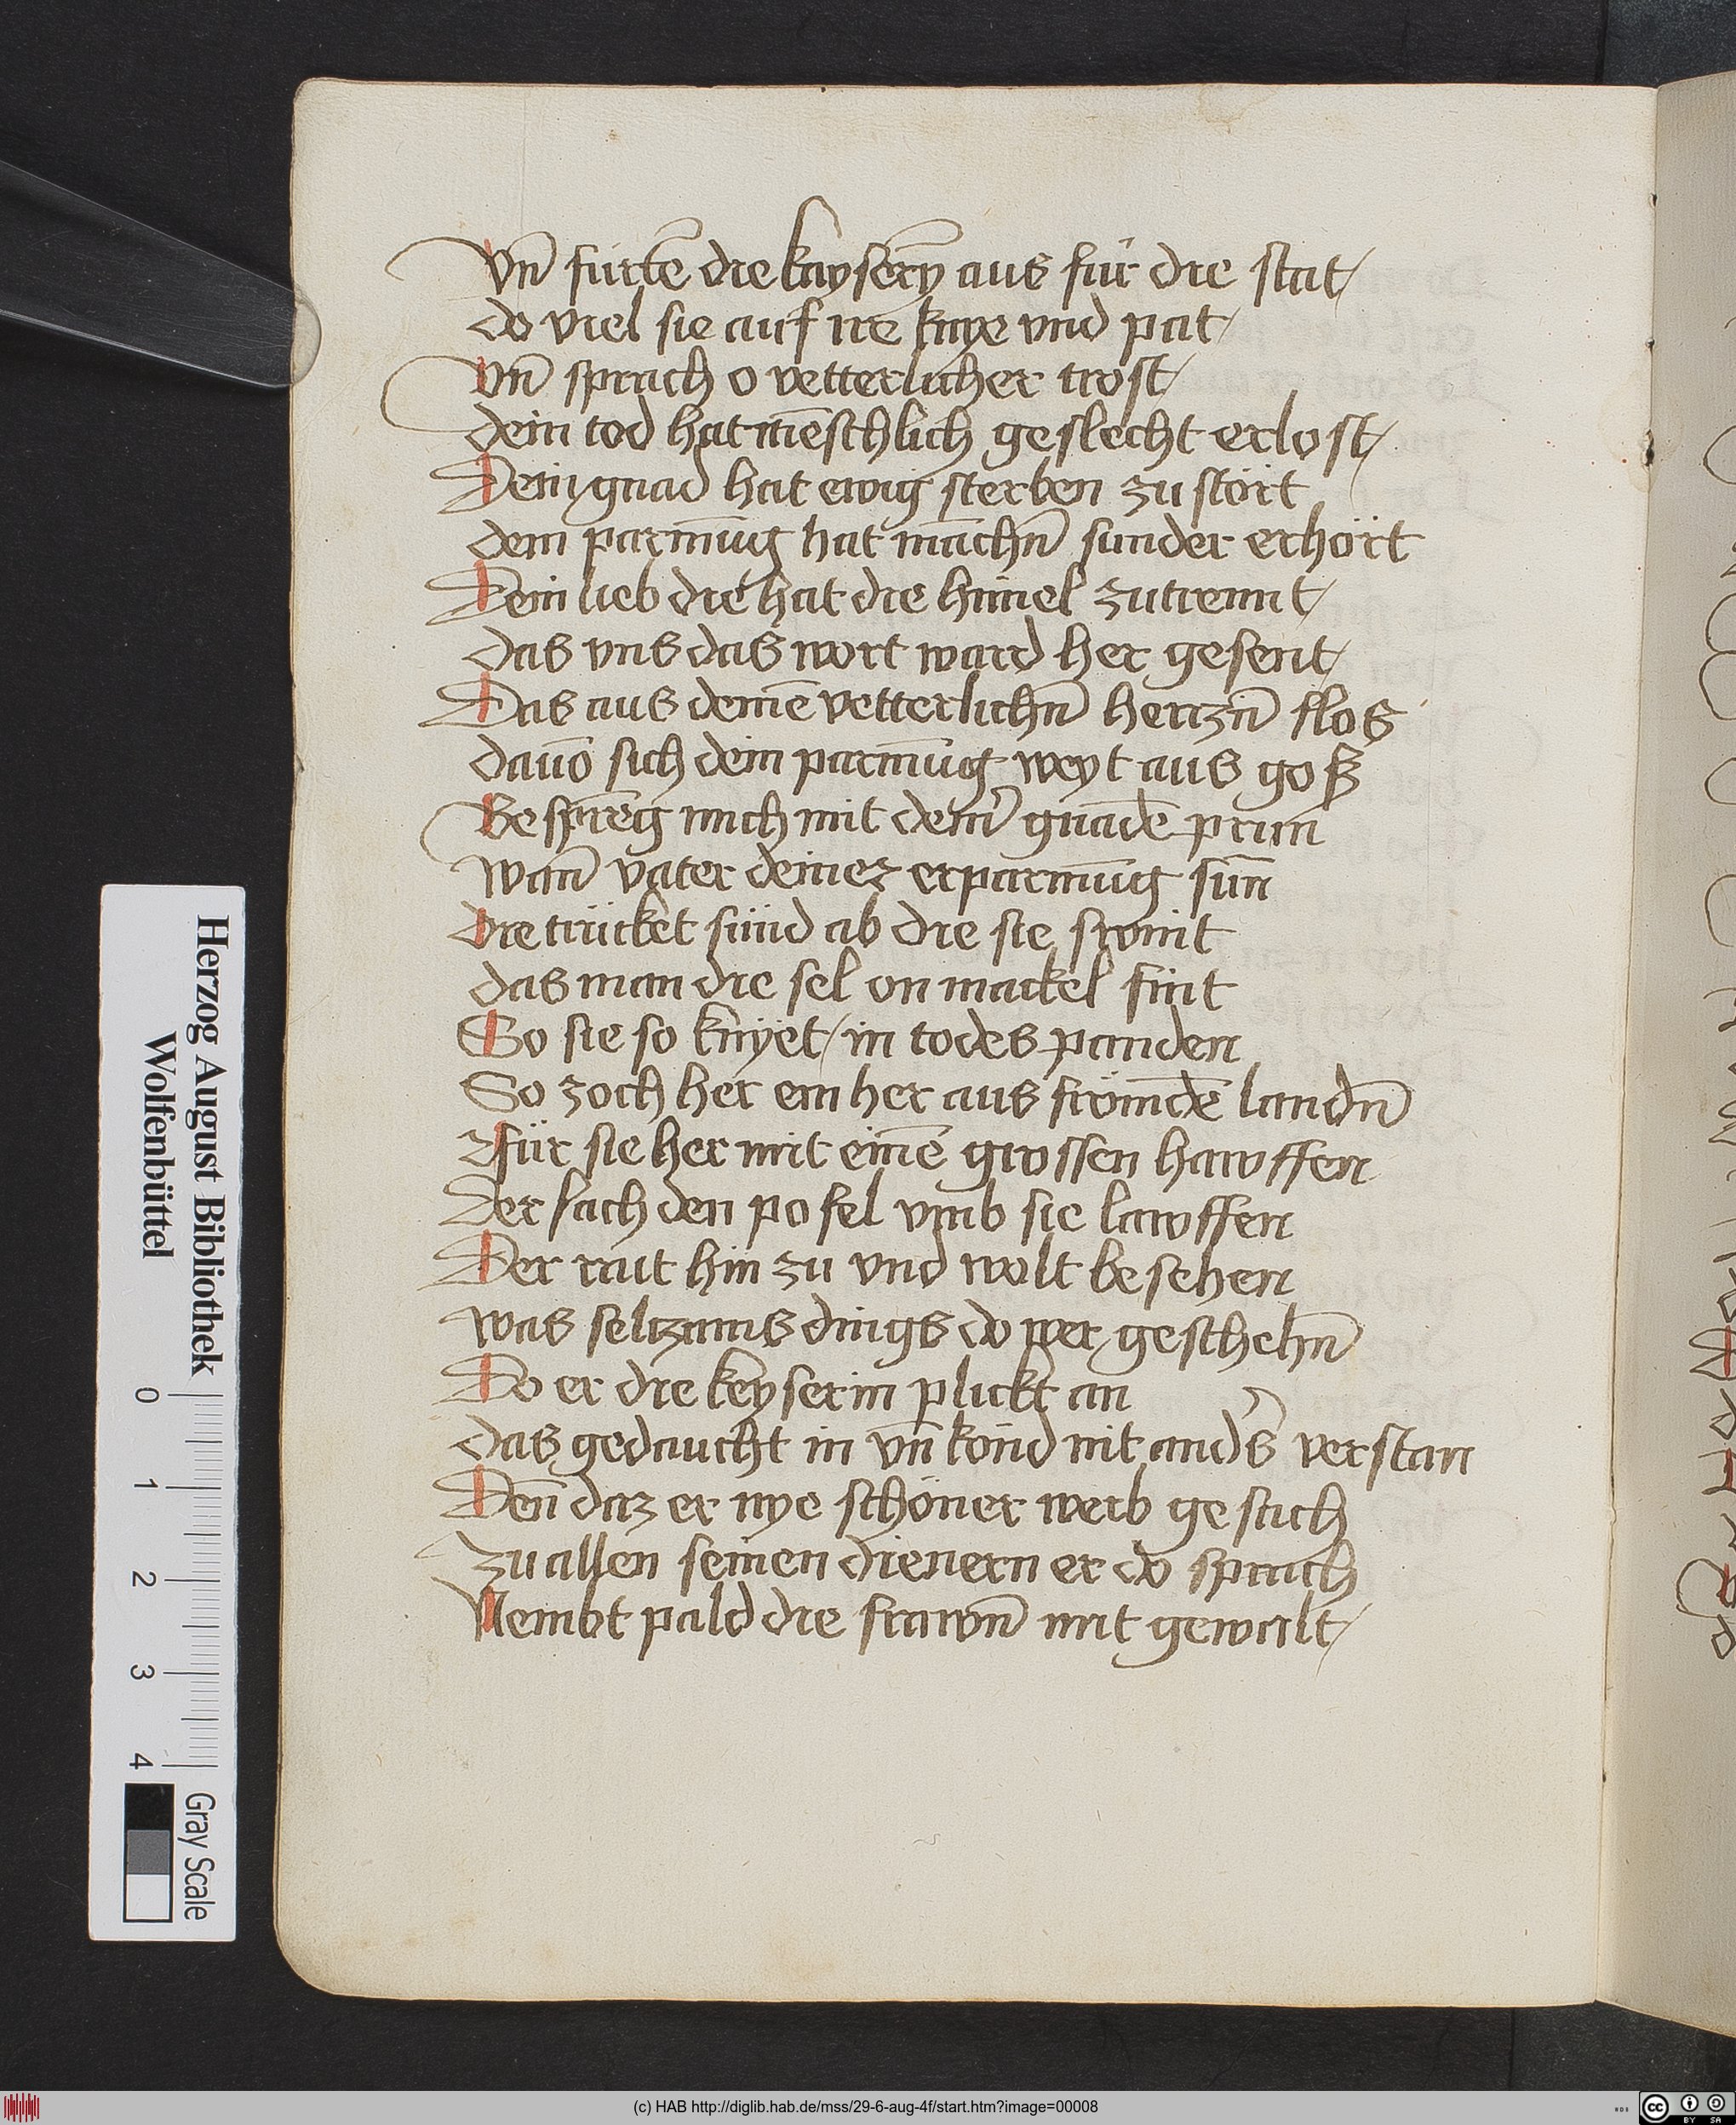 Vn̄ fürtē die kayserȳ aus für die stat/
do viel sie auf ire knye vnd pat/
Vn̄ sprach o vetterlicher trost/
dein tod hat mēschlich geslecht erlost/
Dein gnad hat ewig sterben zu stört
dein parmūg hat māchn̄ sunder erhört
Dein lieb die hat die himel zutrennt/
das vns das wort ward her gesent/
Das aus deinē vetterlichn̄ hertzn̄ flos
dauō sich dein parmūg weyt aus goß
Besprēg mich mit dein̄ gnadē prun
Wan̄ vater deiner erparmūg sun̄
die trücket sünd ab die sie swint
das man die sel on mackel fint
So sie so knyet/ in todes panden
So zoch her ein her aus frömdē landn̄
Zfür sie her mit einē grossen hawffen
Der sach den pofel vmb sie lawffen
Der rait hin zu vnd wolt besehen
was seltzams dings do wer geschehn̄
Do er die keyserin plickt an
das gedaucht in vn̄ kond nit and's verstan
Den̄ daz er nye schöner weib gesach
zu allen seinen dienern er do sprach
Nembt pald die frawn̄ mit gewalt/
Herzog August Bibliothek
Wolfenbüttel
0 1 2 3 4
Gray Scale
(c) HAB http://diglib.hab.de/mss/29-6-aug-4f/start.htm?image=00008
CC BY SA